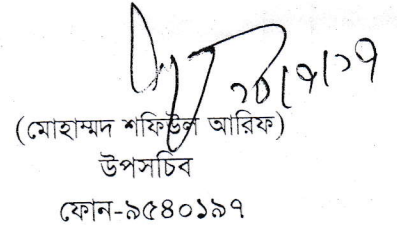 ১৮/৭/১৭
(মোহাম্মদ শফিউল আরিফ)
উপসচিব
ফোন-৯৫৪০১৯৭